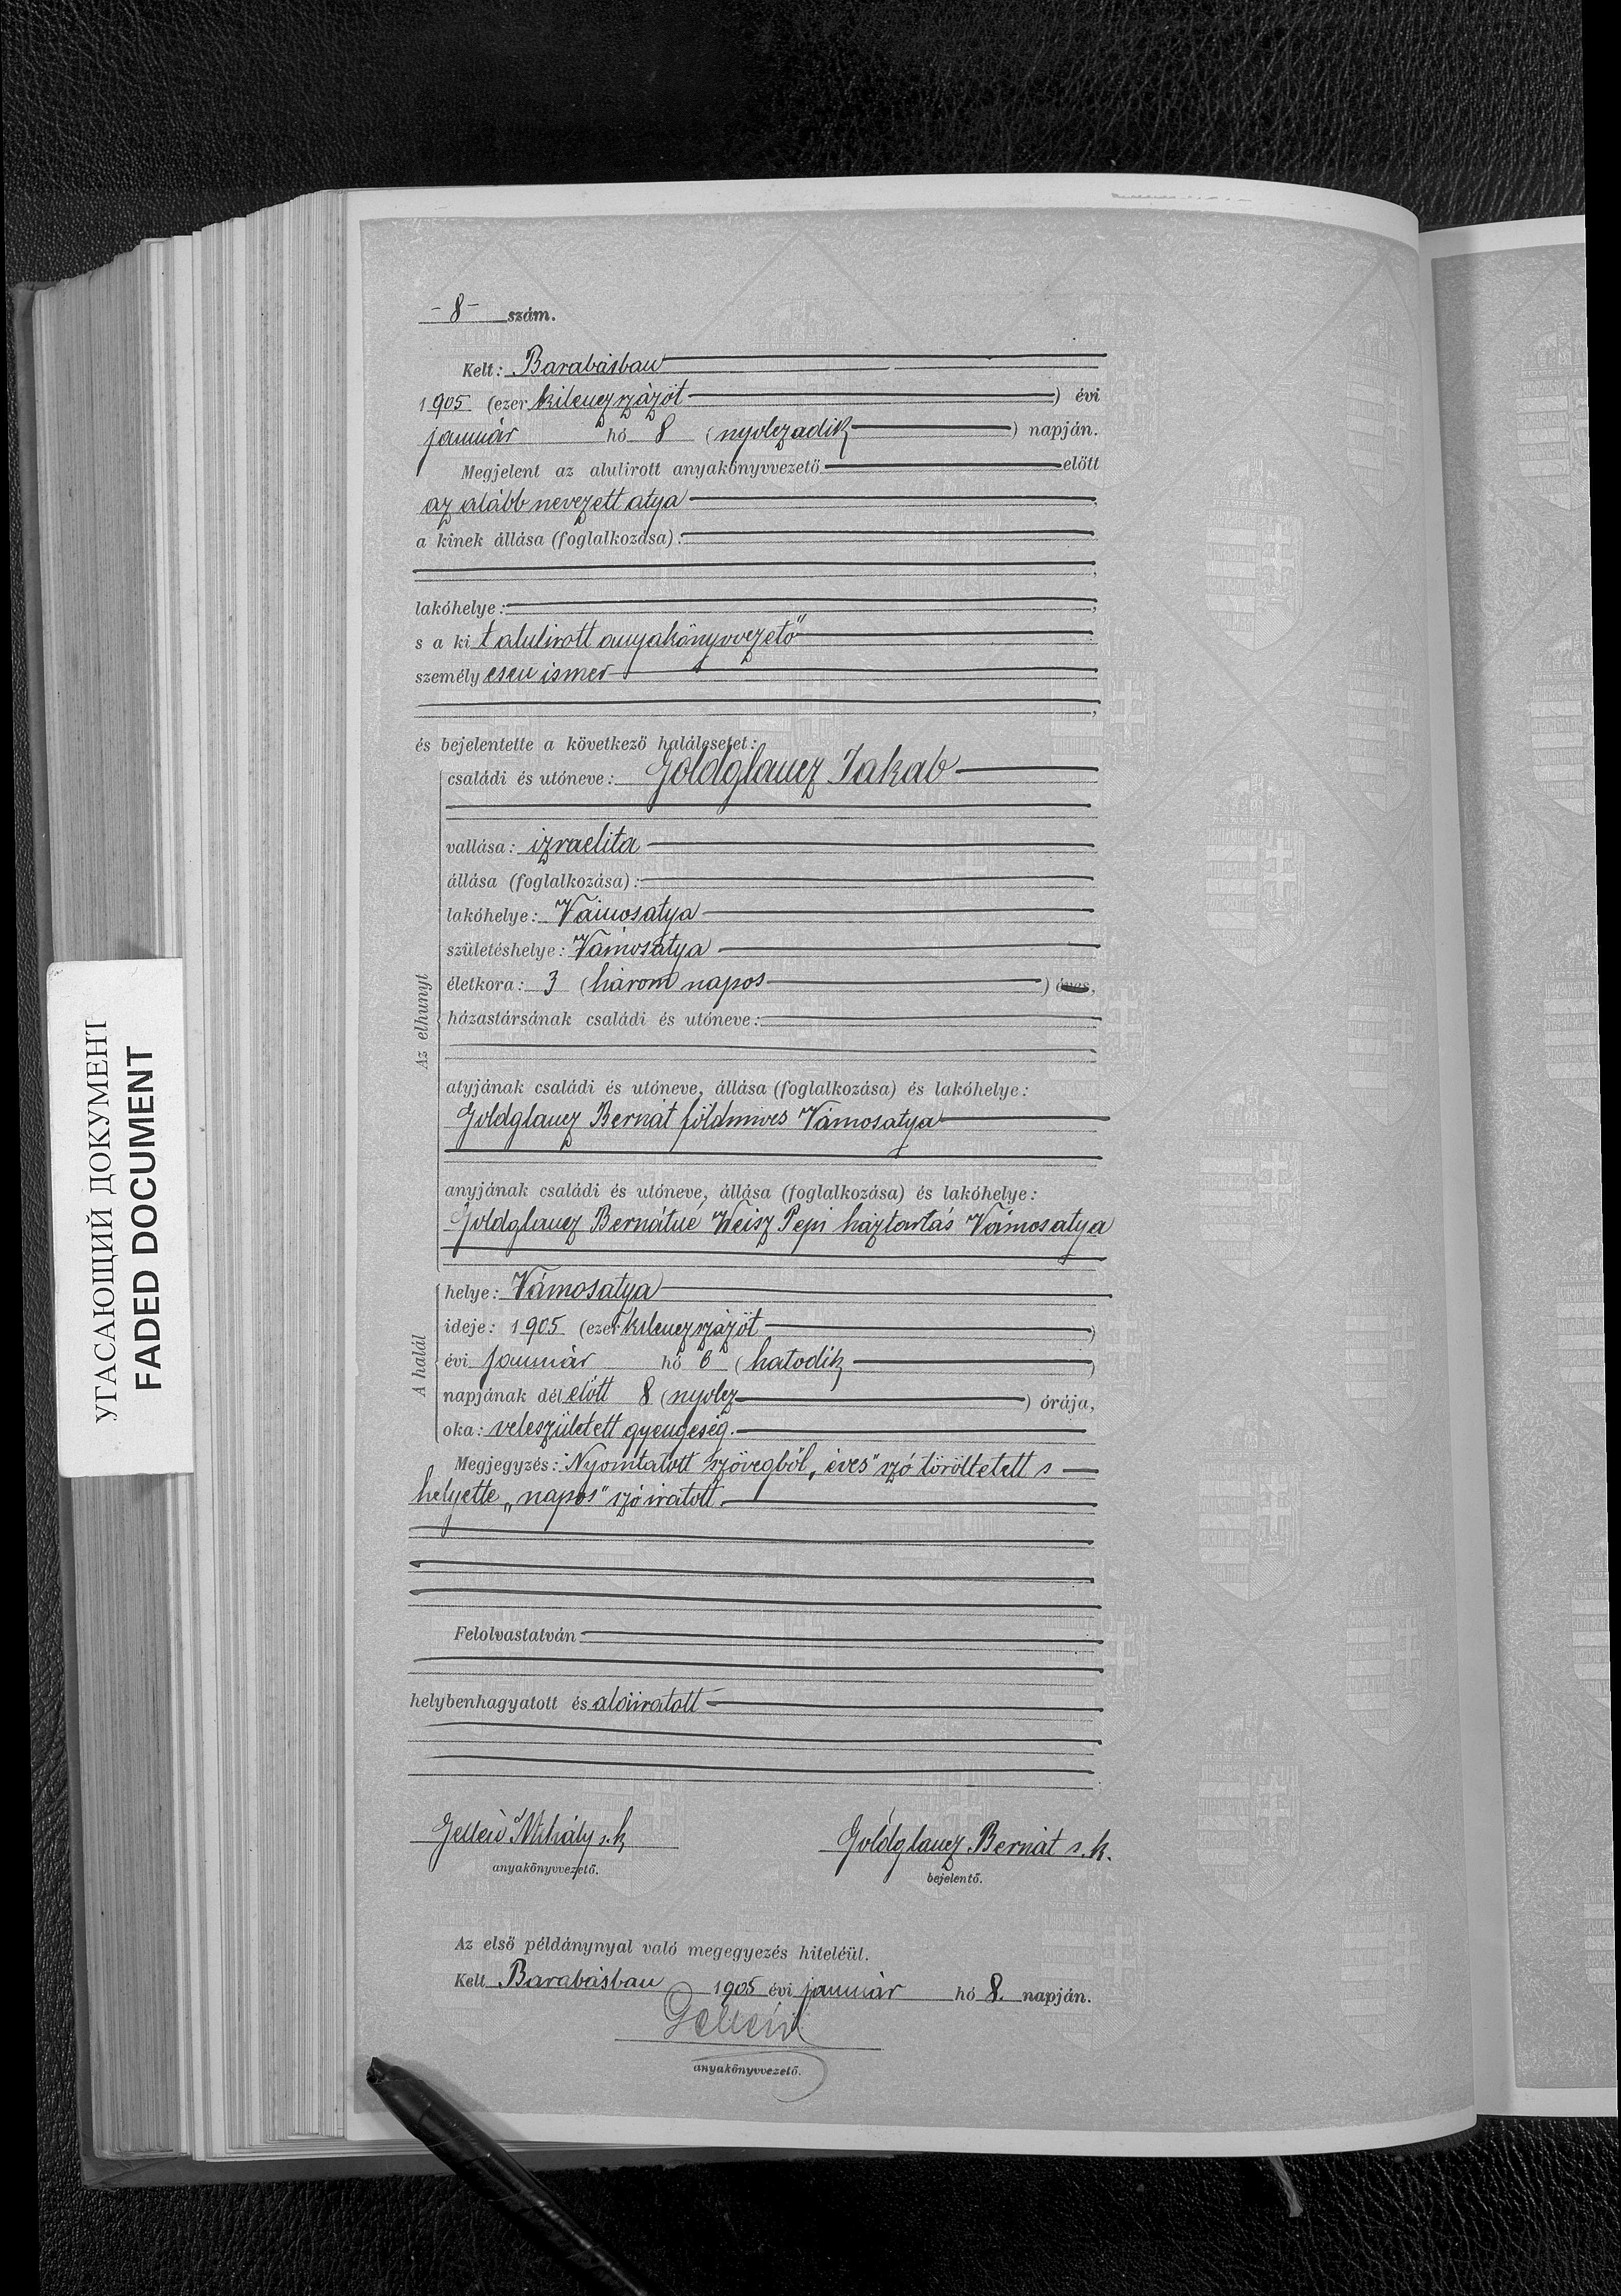 -8- szám.
Kelt: Barabásban
1905 (ezer kilenczszázöt) évi
január hó 8 (nyolczadik) napján.
Megjelent az alulirott anyakönyvvezető előtt
az alább nevezett atya,
a kinek állása (foglalkozása):
lakóhelye:
s a kit alulirott anyakönyvvezető
személyesen ismer
és bejelentette a következő halálesetet:
Az elhunyt
családi és utóneve: Goldglancz Jakab
vallása: izraelita
állása (foglalkozása):
lakóhelye: Vámosatya
születéshelye: Vámosatya
életkora: 3 (három napos) éves,
házastársának családi és utóneve:
atyjának családi és utóneve, állása (foglalkozása) és lakóhelye:
Goldglancz Bernát földmives Vámosatya
anyjának családi és utóneve, állása (foglalkozása) és lakóhelye:
Goldglancz Bernátné Weisz Pepi háztartás Vámosatya
A halál
helye: Vámosatya
ideje: 1905 (ezerkilenczszázöt)
évi január hó 6 (hatodik)
napjának délelőtt 8 (nyolcz) órája,
oka: veleszületett gyengeség.
Megjegyzés: Nyomtatott szövegből „éves" szó töröltetett s
helyette „napos" szó iratott.
Felolvastatván
helybenhagyatott és aláiratott
Mihály s.k. Goldglancz Bernát s.k.
anyakönyvvezető. bejelentő.
Az első példánynyal való megegyezés hiteléül.
Kelt Barabásban 1905 évi január hó 8. napján.
anyakönyvvezető.
УГАСАЮЩИЙ ДОКУМЕНТ
FADED DOCUMENT